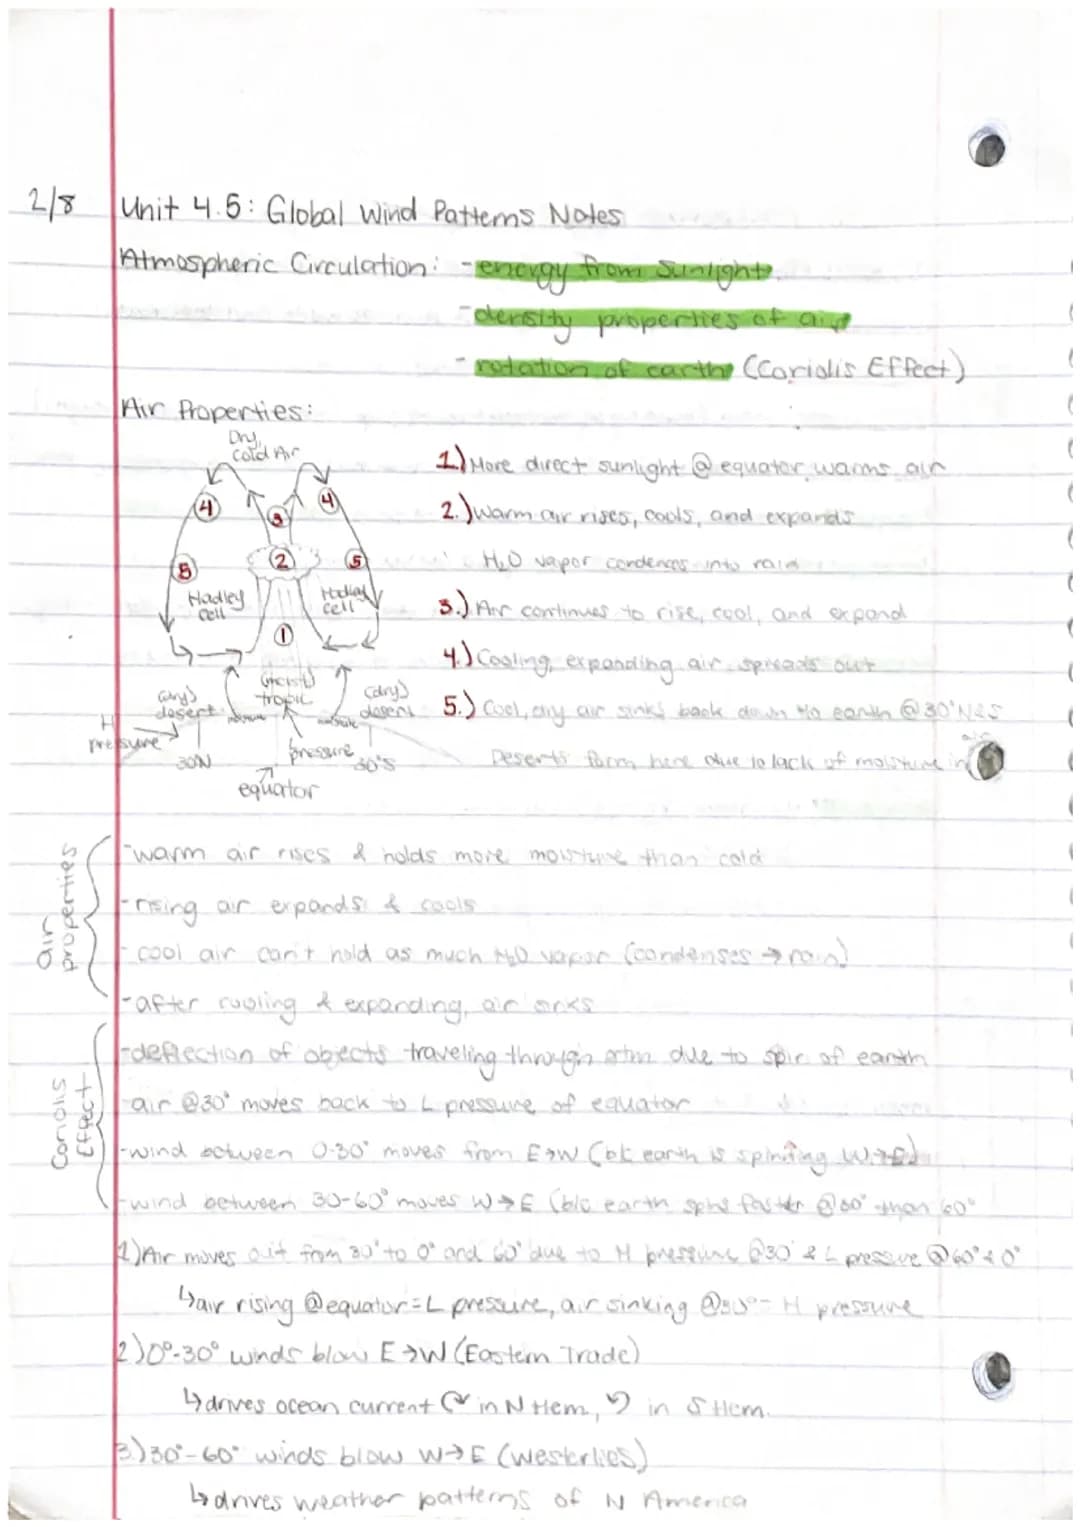 2/8 Unit 4.5: Global Wind Patterns Notes
Atmospheric Circulation: -energy from sunlight
-density properties of air
-rotation of earth (Coriolis Effect)
Air Properties:
Dry,
Cold Air
4
4
3
2
5
5
Hadley
cell
Hadley
cell
1
(moist)
tropic
(dry)
desert
(dry)
desert
H
pressure
pressure
30N
30°S
equator
1.) More direct sunlight @ equator warms air
2.) Warm air rises, cools, and expands
H₂O vapor condenses into rain
3.) Air continues to rise, cool, and expand
4.) Cooling, expanding air spreads out
5.) Cool, dry air sinks back down to earth @ 30°N&S
Deserts form here due to lack of moisture in air
air
properties
-warm air rises & holds more moisture than cold
-rising air expands & cools
-cool air can't hold as much H₂O vapor (condenses → rain)
-after cooling & expanding, air sinks
Coriolis
Effect
-deflection of objects traveling through atm due to spin of earth
-air @30° moves back to L pressure of equator
-wind between 0-30° moves from E→W (b/c earth is spinning W→E)
-wind between 30-60° moves W→E (b/c earth spins faster @30° than 60°
1) Air moves out from 30° to 0° and 60° due to H pressure @30° & L pressure @60° & 0°
↳air rising @equator = L pressure, air sinking @30° = H pressure
2) 0°-30° winds blow E→W (Eastern Trade)
↳drives ocean current ↻ in N Hem, ↺ in S Hem.
3.) 30°-60° winds blow W→E (Westerlies)
↳drives weather patterns of N America